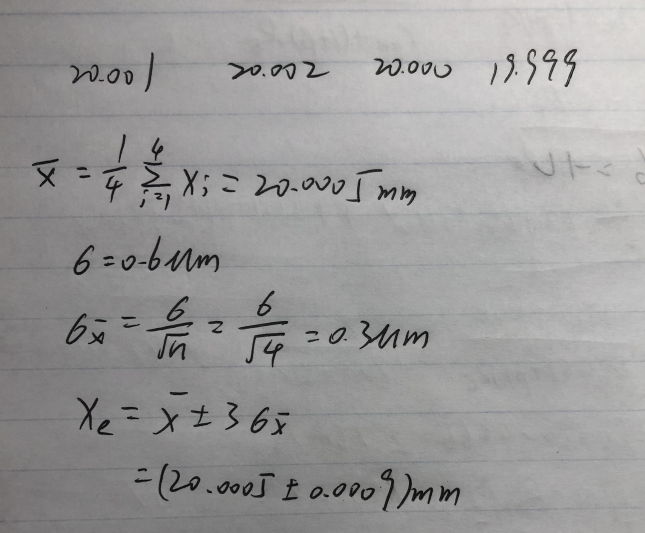 20.001 20.002 20.000 19.999
x̄ = 1/4 Σ_{i=1}^{4} x_i = 20.0005mm
σ = 0.6μm
σx̄ = σ/√n = σ/√4 = 0.3μm
x_e = x̄ ± 3σx̄
= (20.0005 ± 0.0009)mm